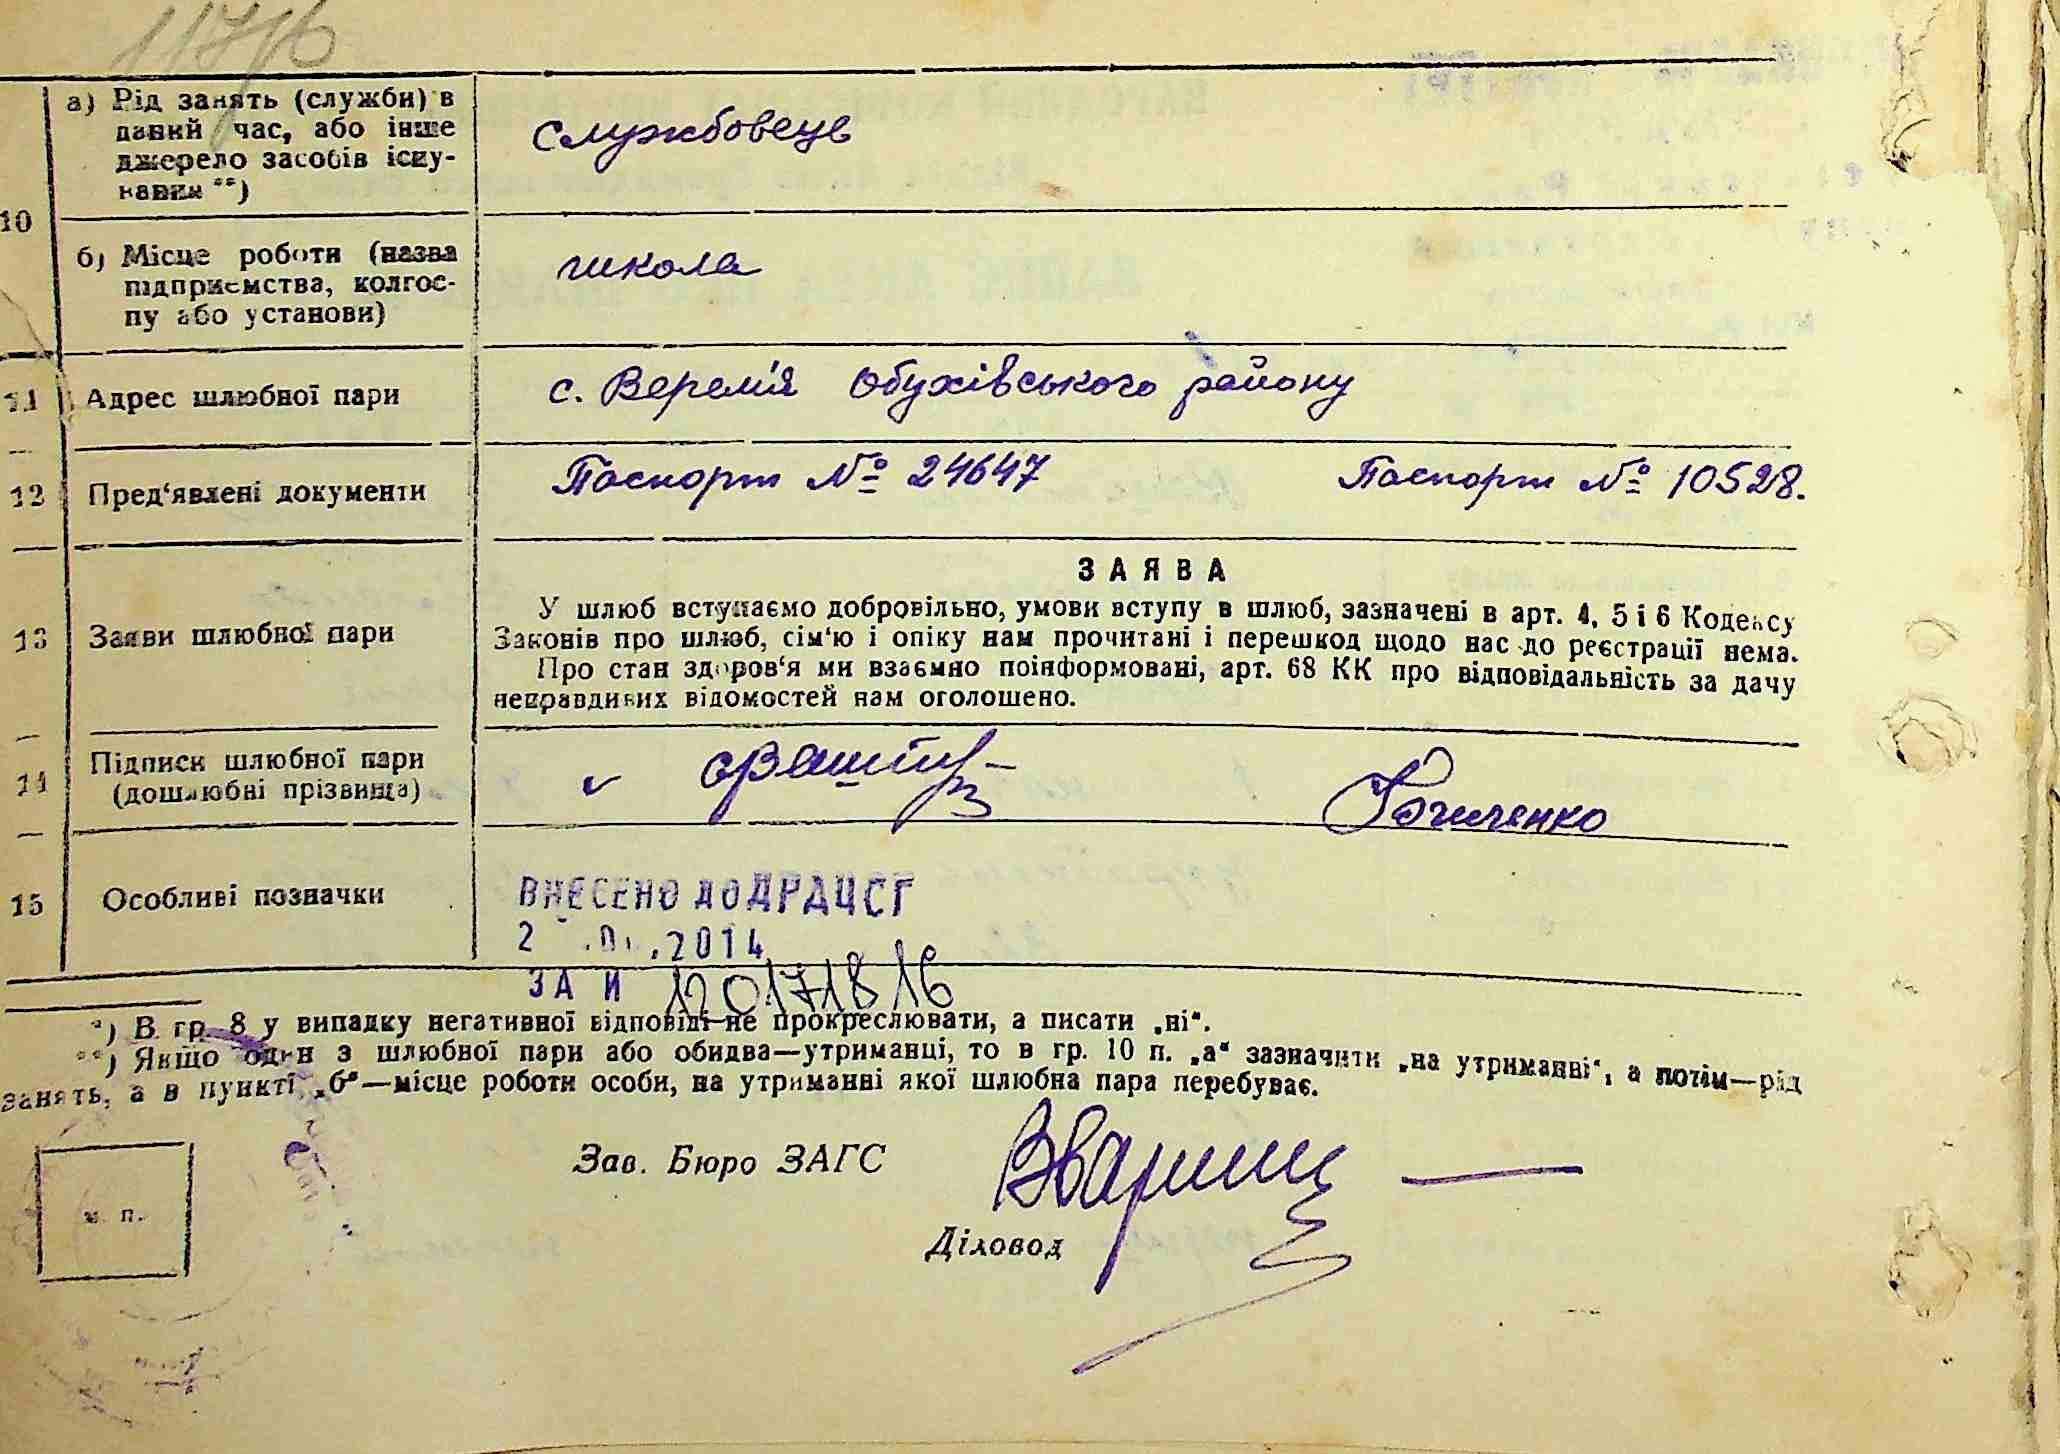 117/6
а) Рід занять (служби) в
даний час, або інше
джерело засобів існу-
вання **)
службовець
10
б) Місце роботи (назва
підприємства, колгос-
пу або установи)
школа
11 Адрес шлюбної пари с. Верем'я Обухівського району
12 Пред'явлені документи Паспорт № 24647 Паспорт № 10528.
ЗАЯВА
13 Заяви шлюбної пари
У шлюб вступаємо добровільно, умови вступу в шлюб, зазначені в арт. 4, 5 і 6 Кодексу
Законів про шлюб, сім'ю і опіку нам прочитані і перешкод щодо нас до реєстрації нема.
Про стан здоров'я ми взаємно поінформовані, арт. 68 КК про відповідальність за дачу
неправдивих відомостей нам оголошено.
14 Підписи шлюбної пари
(дошлюбні прізвища)
15 Особливі позначки
ВНЕСЕНО ДО ДРАЦСГ
2 2014
ЗА И 120171816
*) В гр. 8 у випадку негативної відповіді не прокреслювати, а писати „ні“.
**) Якщо один з шлюбної пари або обидва—утриманці, то в гр. 10 п. „а“ зазначити „на утриманні“, а потім—рід
занять, а в пункті „б“—місце роботи особи, на утриманні якої шлюбна пара перебуває.
Зав. Бюро ЗАГС
м. п.
Діловод